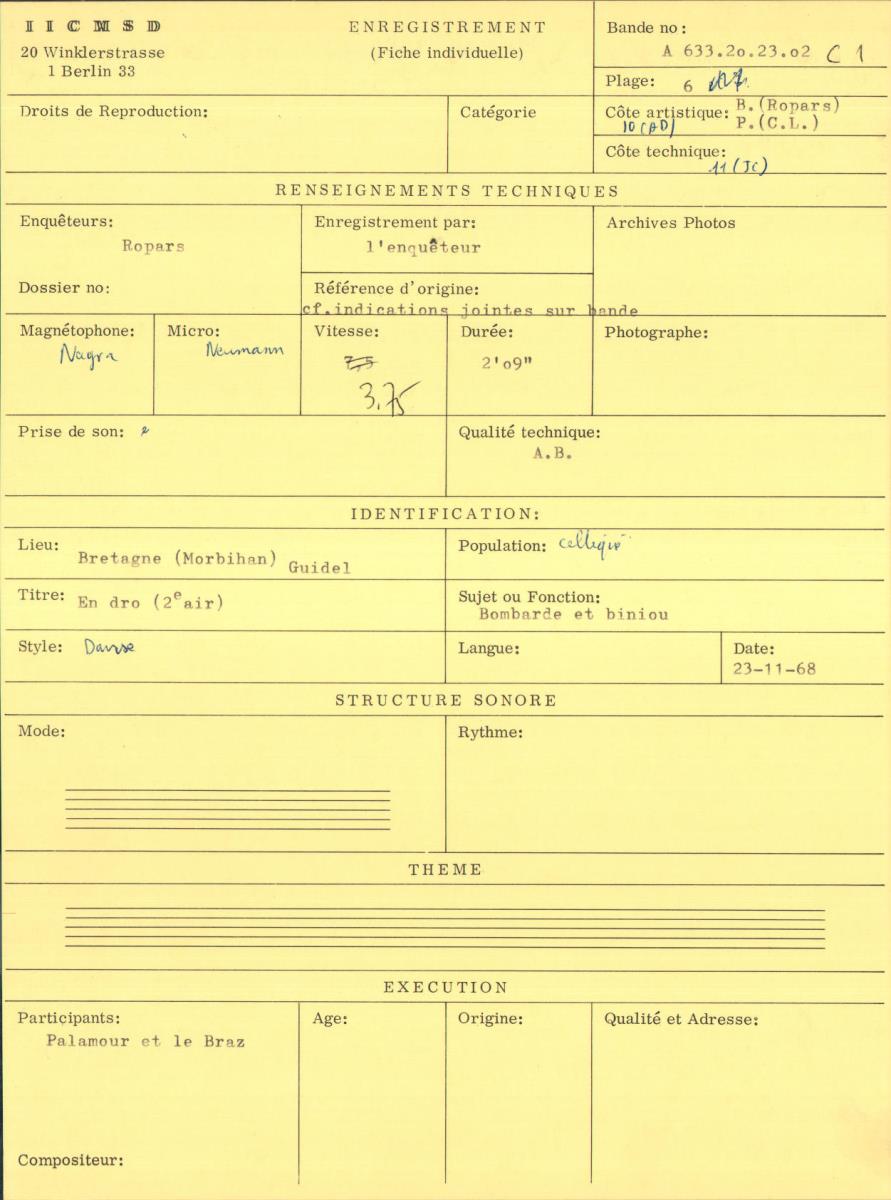 I I C M S D
20 Winklerstrasse
1 Berlin 33
ENREGISTREMENT
(Fiche individuelle)
Bande no :
A 633.2o.23.o2 C 1
Plage: 6
Droits de Reproduction:
Catégorie
Côte artistique: B.(Ropars)
10 (AD) P.(C.L.)
Côte technique:
11 (JC)
RENSEIGNEMENTS TECHNIQUES
Enquêteurs:
Ropars
Dossier no:
Enregistrement par:
l'enquêteur
Référence d'origine:
cf.indications jointes sur bande
Archives Photos
Magnétophone:
Nagra
Micro:
Neumann
Vitesse:
7,5
3,75
Durée:
2'o9"
Photographe:
Prise de son:
Qualité technique:
A.B.
IDENTIFICATION:
Lieu: Bretagne (Morbihan) Guidel
Population: celtique
Titre: En dro (2e air)
Sujet ou Fonction:
Bombarde et biniou
Style: Danse
Langue:
Date:
23-11-68
STRUCTURE SONORE
Mode:
Rythme:
THEME
EXECUTION
Participants:
Palamour et le Braz
Age:
Origine:
Qualité et Adresse:
Compositeur: